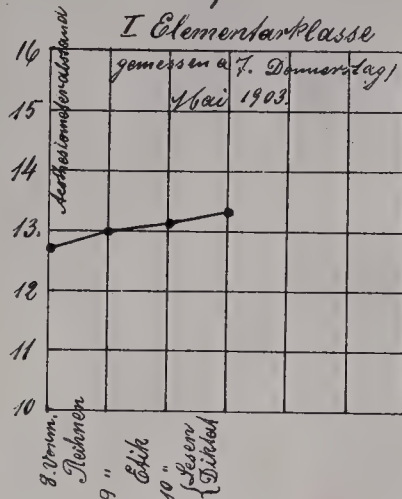 I Elementarklasse
gemessen a 7. Donnerstag/
Mai 1903.
Aesthesiometerabstand
16
15
14
13.
12
11
10
8. Vorm.
Reihnen
9 "
Etik
10 "
Lesen
Diktat